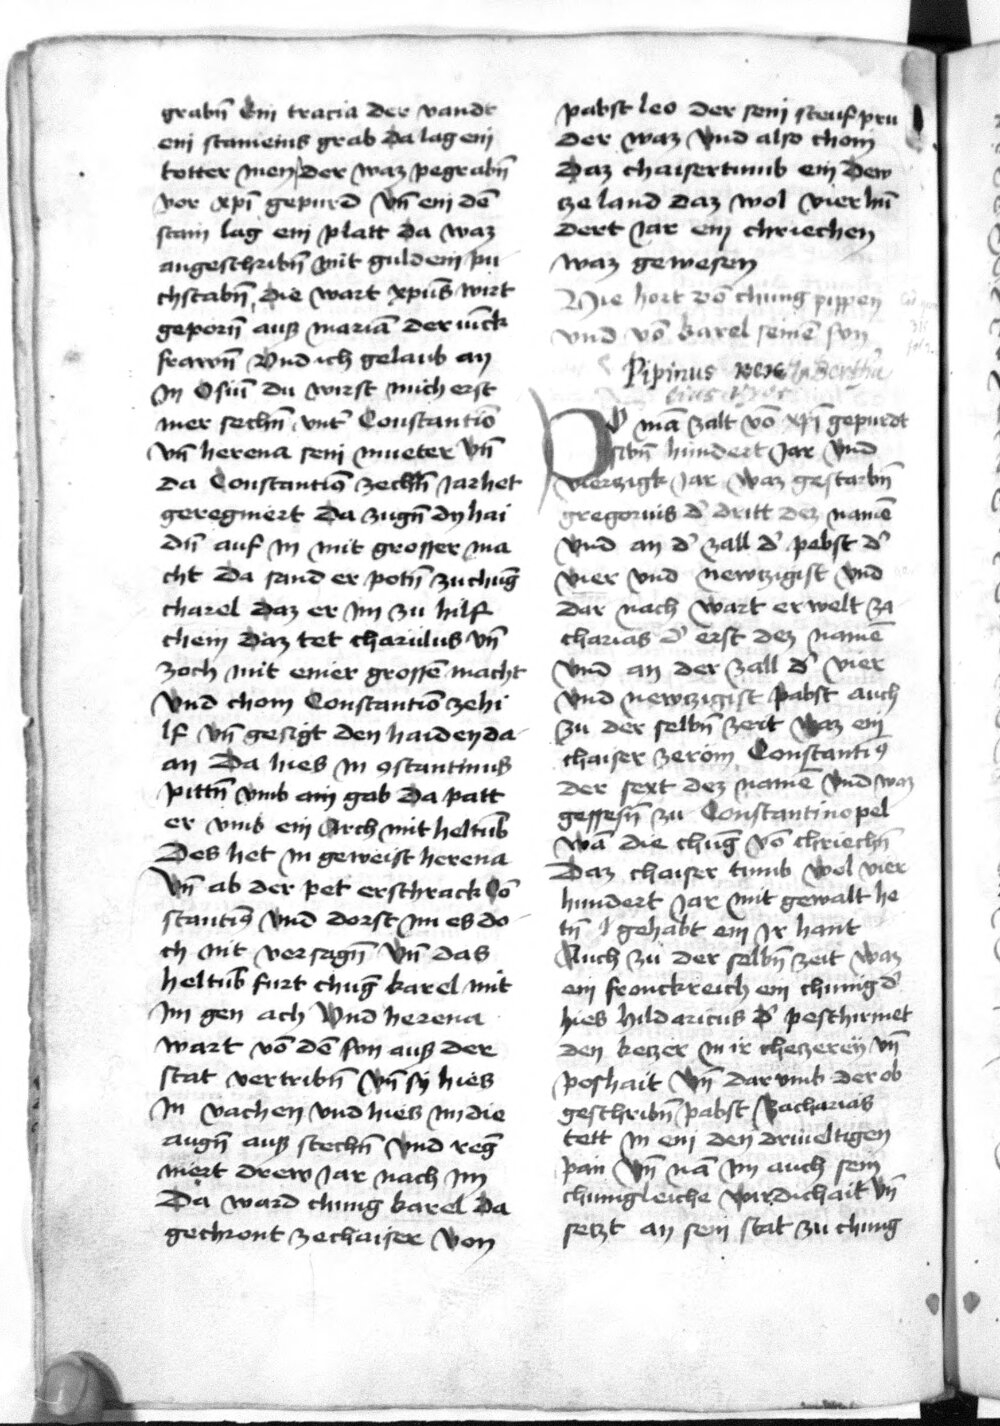 grabñ Ein tracia der vandt
ein staineins grab Da lag ein
totter men der waz pegrabñ
vor xp̄i gepurd Vñ ein dē
stain lag ein platt da waz
angeschribñ mit guldem pu
chstabñ die wart xpūs wirt
geporñ auß mariā der iūck
frawñ Vnd ich gelaub an
In O du wirst mich erst
mer sechñ vnt Constantiō
Vñ herena sein mueter Vñ
da Constantiō zechñ Jar het
geregniert Da zugñ dy hai
dñ auf in mit grosser ma
cht Da sand er potñ zu chūg
charel daz er im zu hilf
chem Daz tet charulus vñ
zoch mit einer grossē macht
Vnd chom Constantiō ze hi
lf vñ gesigt den haiden da
an Da hies in 9stantinus
pittñ vmb ain gab Da patt
er vmb ein Arch mit heltūb
Des het in geweist herena
Vñ ab der pet erschrack Cō
stanti9 vnd dorst im es do
ch nit versagñ Vñ das
heltūb furt chūg karel mit
Im gen ach Vnd herena
wart vō dē sun auß der
stat vertribñ Vñ sy hies
In vachen vnd hies im die
augñ auß stechñ Vnd reg̃
niert drew Jar nach Im
Da ward chunig karel Da
gechront ze chaiser Von
pabst leo der sein steuf pru
der waz Vnd also chom
Daz chaisertumb ein Dew
tze land daz wol vier hū
dert Jar ein chriechen
waz gewesen
Hie hort vō chung pippen
vnd vō karel seinē sun
Pipinus rex Bertha
eius
D mā zalt vō xp̄i gepurdt
sibñ hundert Jar vnd
vierzigk Jar waz gestarbñ
gregorius d' dritt dez namē
Vnd an d' zall d' pebst d'
vier vnd newtzigist vnd
dar nach wart er welt za
charias d' erst dez namē
vnd an der zall d' vier
vnd newtzigist pabst auch
zu der selbñ zeit waz ein
chaiser ze rom Constanti9
der sext dez namē vnd waz
gessesñ zu Constantinopel
wā die chūg vō chriechñ
Daz chaiser tumb wol vier
hundert Jar mit gewalt he
tñ gehabt ein Ir hant
Auch zu der selbñ zeit waz
ein fronckreich ein chunig d'
hies hildaricus d' peschirmet
den ketzer in ir chetzereÿ vñ
poshait Vñ dar vmb der ob
geschribñ pabst Zacharias
tett in ein den driueltigen
pan Vñ nā im auch sein
chunigleiche wirdichait Vñ
setzt an sein stat zu chung